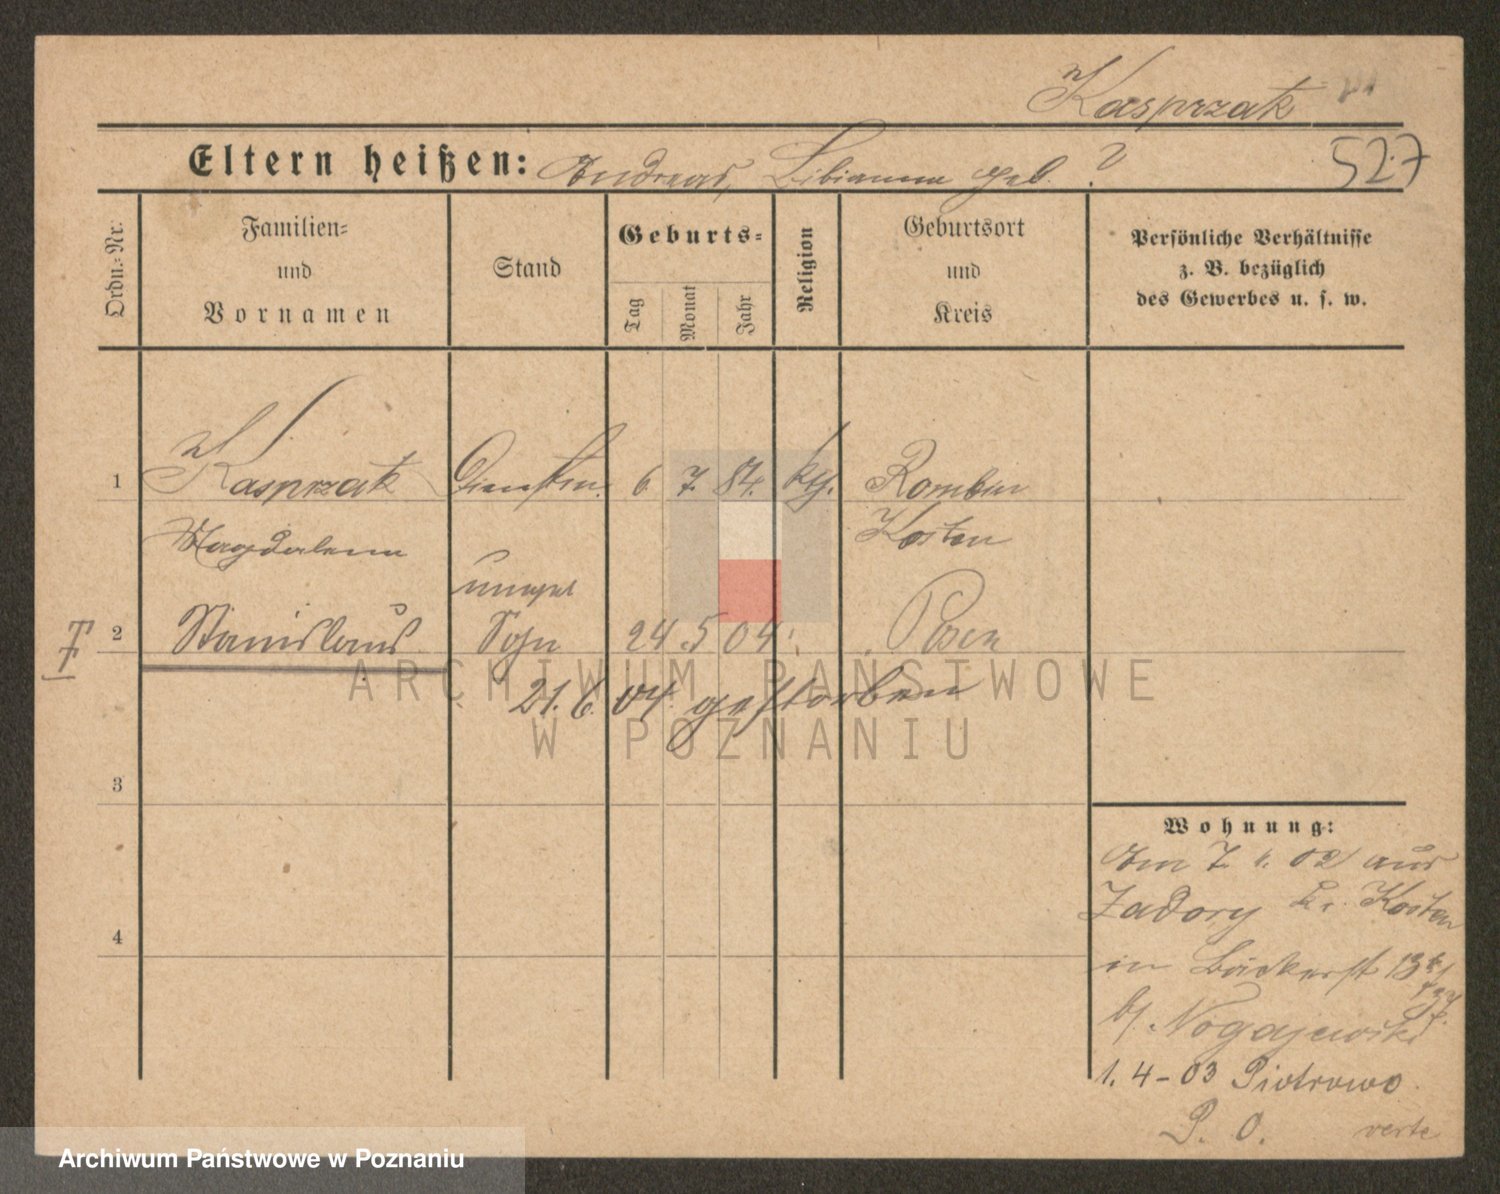 Kasprzak
527
Eltern heißen: Andreas, Bibianna geb. ?
Ordn.-Nr.
Familien- und Vornamen
Stand
Geburts-
Tag
Monat
Jahr
Religion
Geburtsort und Kreis
Persönliche Verhältnisse
z. B. bezüglich
des Gewerbes u. s. w.
1 Kasprzak Dienstm. 6. 7. 84. kth. Rombin
Magdalena Kosten
unehel
2 Stanislaus Sohn 24. 5 04. Posen
21. 6. 04. gestorben
3
4
Wohnung:
Am 7. 1. 02 aus
Zadory Kr. Kosten
in Bäckerst 13
b/ Nogajewski
1. 4 - 03 Piotrowo
P. O.
verte
ARCHIWUM PAŃSTWOWE
W POZNANIU
Archiwum Państwowe w Poznaniu